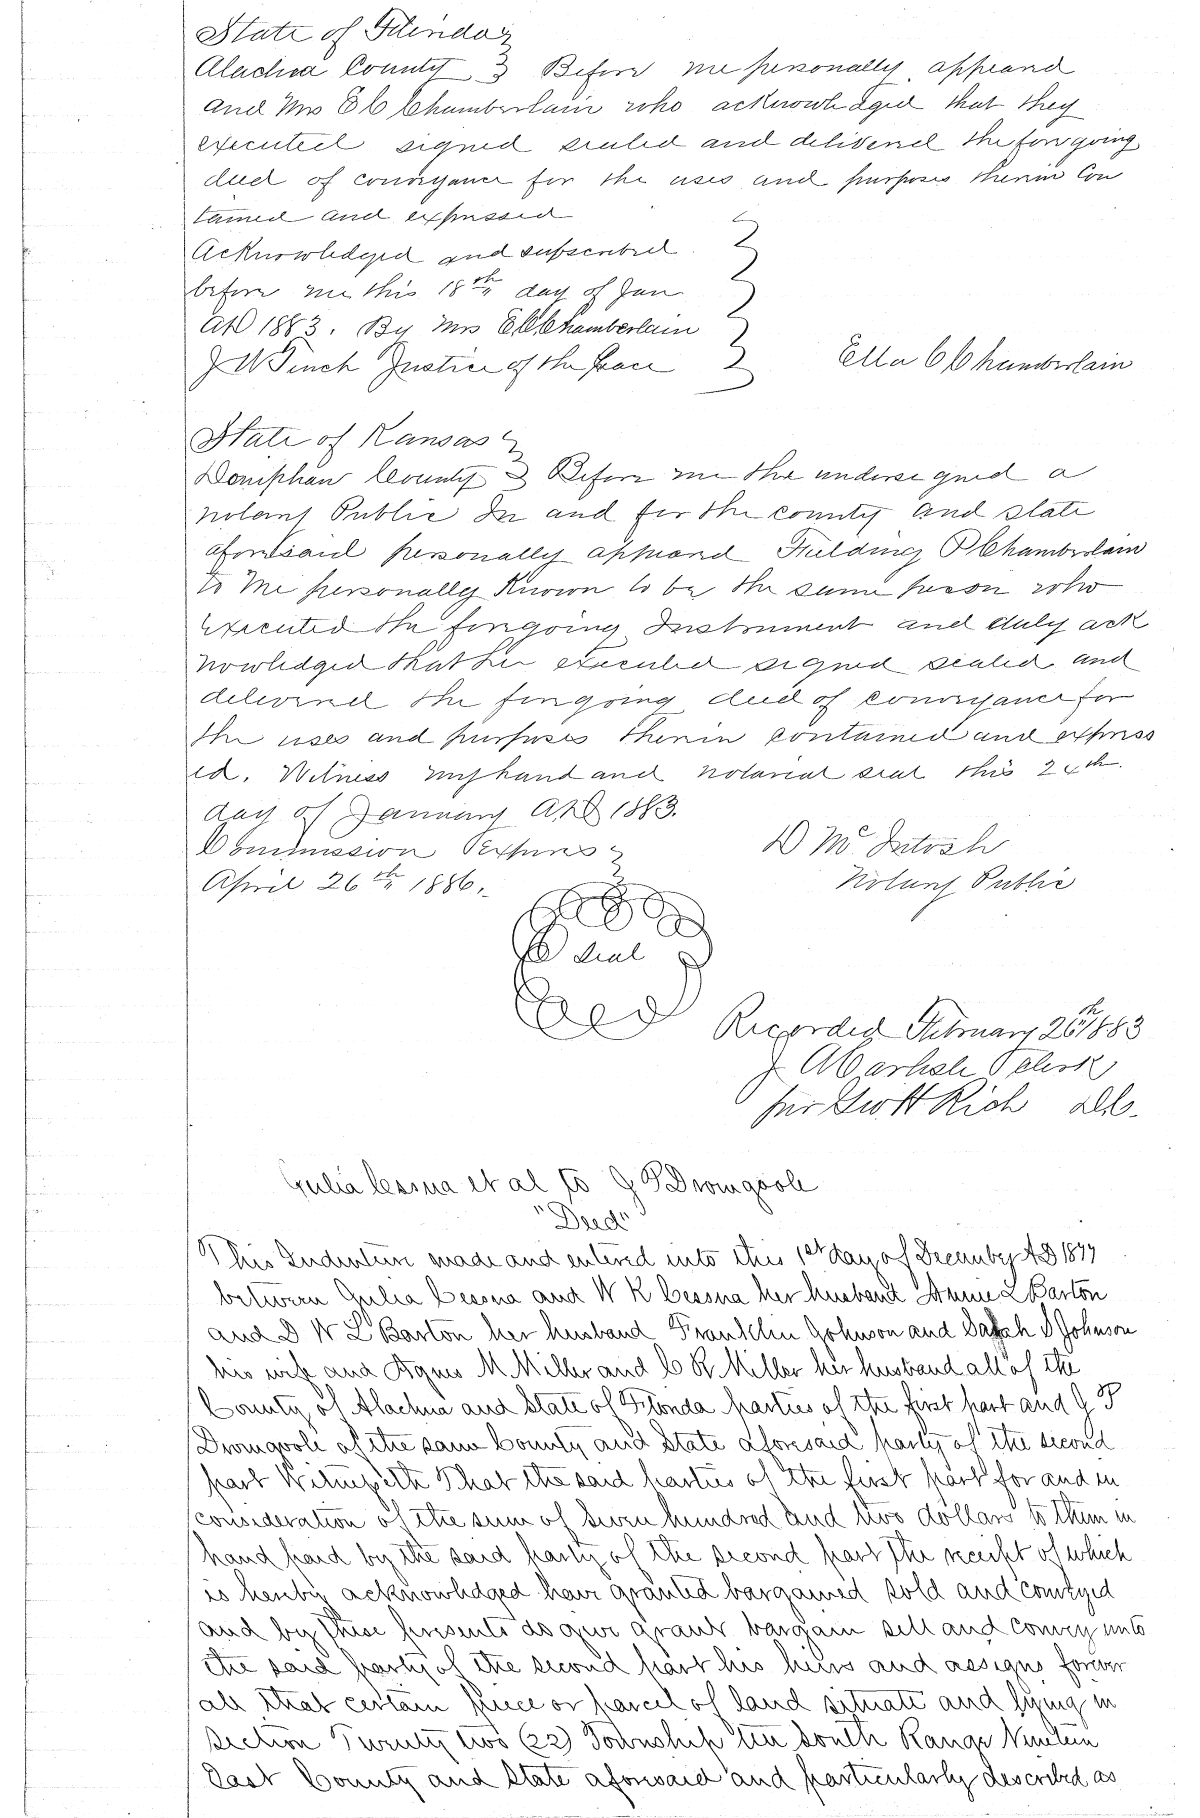 State of Florida
Alachua County } Before me personally appeard
and Mrs E C Chamberlain who acknowledged that they
executed signed sealed and delivered the forgoing
deed of conveyance for the uses and purposes therin Con
tained and expressed
Acknowledged and subscribed
before me this 18th day of Jan
AD 1883. By Mrs E C Chamberlain
J W Finch Justice of the Peace
Ella C Chamberlain
State of Kansas
Doniphan County } Before me the undersigned a
Notary Public In and for the county and state
aforesaid personally appeard Fielding P Chamberlain
to me personally Known to be the same person who
executed the forgoing Instrument and duly ack
nowledged that he executed signed sealed and
delivered the forgoing deed of conveyance for
the uses and purposes therin contained and express
ed. Witness my hand and notarial seal this 24th
day of January AD 1883.
Commission Expires
April 26th 1886.
D McIntosh
Notary Public
seal
Recorded February 26th 1883
J A Carlisle Clerk
per Geo H Rich D.C.
Julia Cessna et al to G P Dromgoole
"Deed"
This Indenture made and entered into this 1st day of December AD 1877
between Julia Cessna and W K Cessna her husband Annie L Barton
and D W L Barton her husband Franklin Johnson and Sarah S Johnson
his wife and Agnes M Miller and C R Miller her husband all of the
County of Alachua and State of Florida parties of the first part and G P
Dromgoole of the same County and State aforesaid party of the second
part Witnesseth That the said parties of the first part for and in
consideration of the sum of seven hundred and two dollars to them in
hand paid by the said party of the second part the receipt of which
is hereby acknowledged have granted bargained sold and conveyed
and by these presents do give grant bargain sell and convey unto
the said party of the second part his heirs and assigns forever
all that certain piece or parcel of land situate and lying in
Section Twenty two (22) Township ten South Range Nineteen
East County and State aforesaid and particularly described as